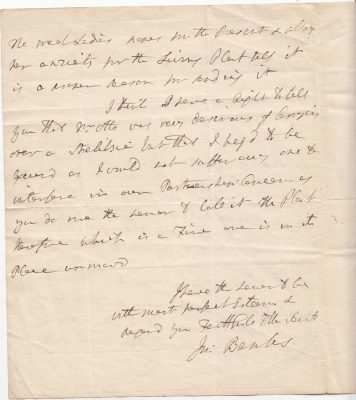 We need Ladies news for the Present & allay
her anxiety for the Living Plant till it
is a proper season for sending it
I think I have a Right to tell
you that Mr Otto was very desirous of carrying
over a Strelitzia but that I beg'd to be
excused as I would not suffer any one to
interfere in our Partnership Concern as
you do me the honor to call it the Plant
therefore which is a Fine one is in its
Place unmovd
I have the honor to be
with most perfect Esteem &
regard your Faithful & Hble Servt
Jos: Banks